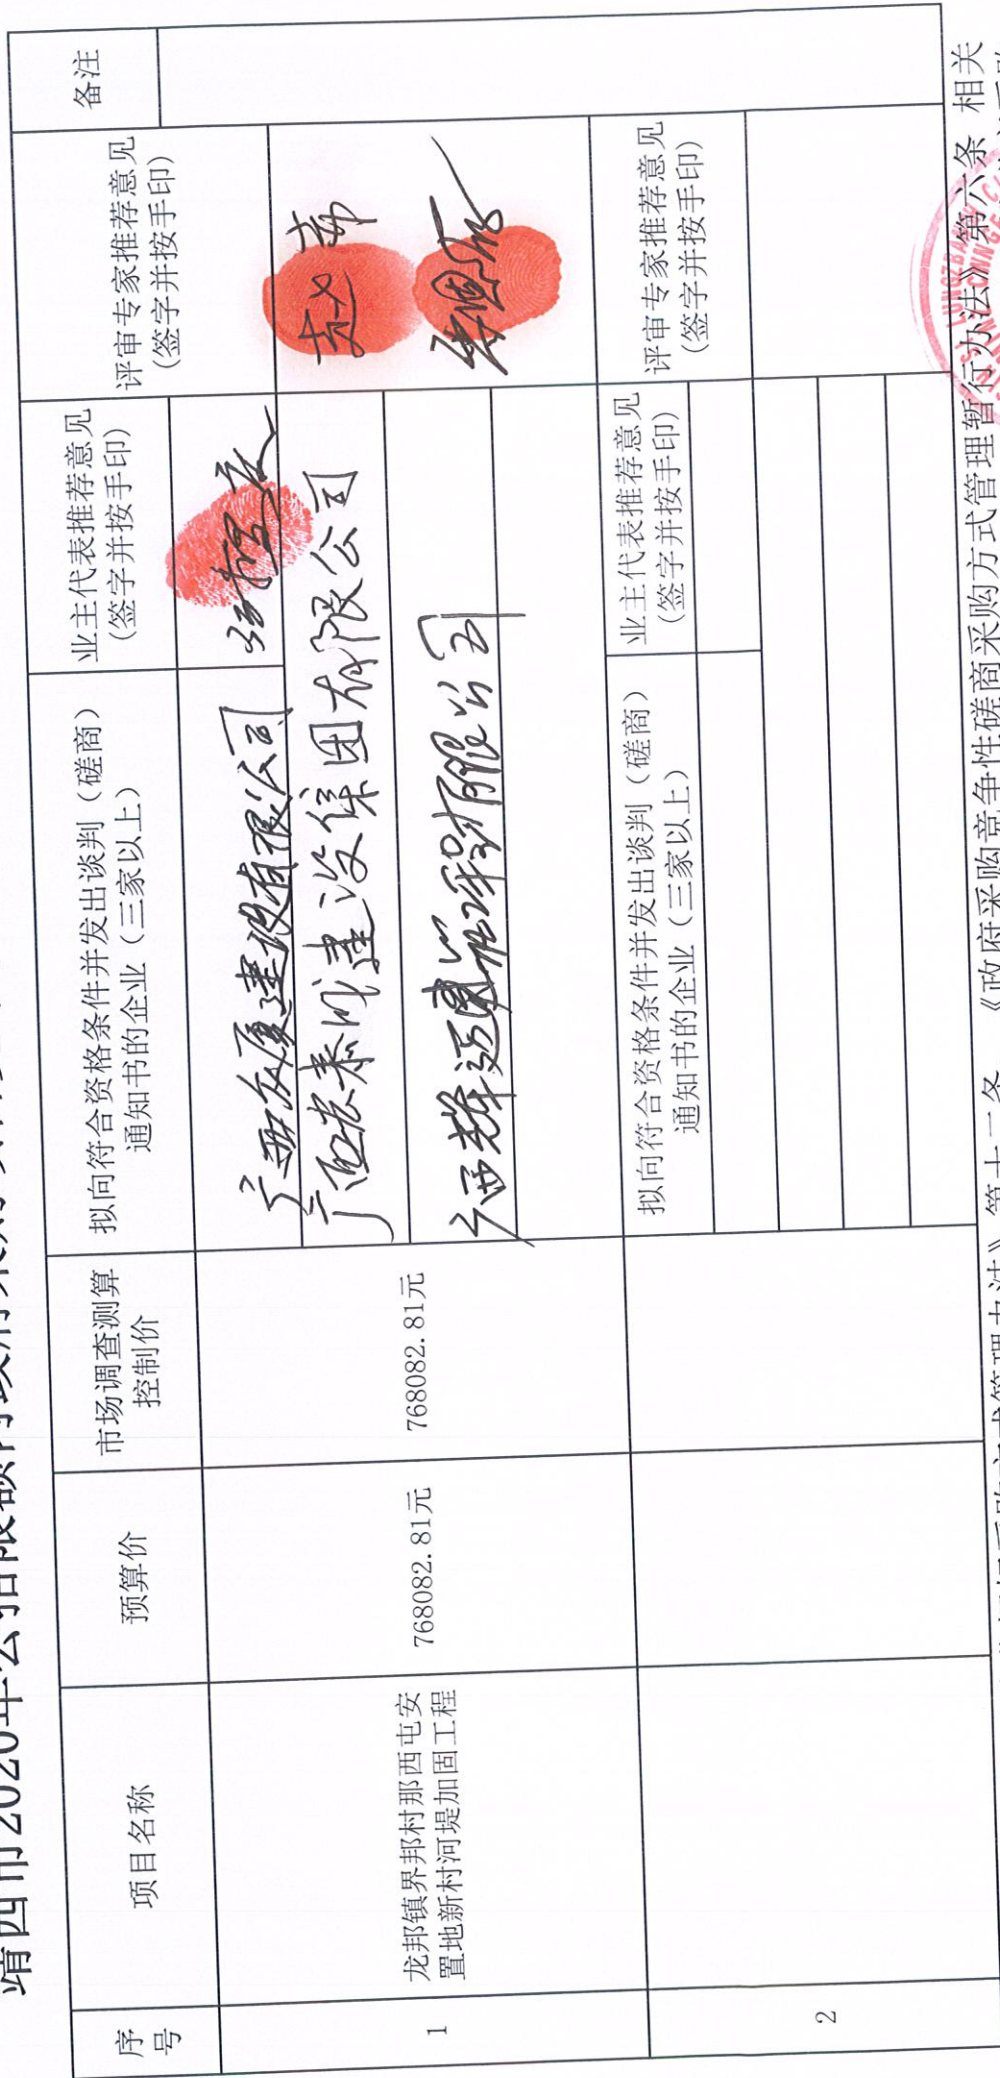 靖西市2020年公招限额内政府采购
序号
项目名称
预算价
市场调查测算
控制价
拟向符合资格条件并发出谈判（磋商）
通知书的企业（三家以上）
业主代表推荐意见
(签字并按手印)
评审专家推荐意见
(签字并按手印)
备注
1
龙邦镇界邦村那西屯安
置地新村河堤加固工程
768082.81元
768082.81元
广西友厦建设有限公司
广西宏泰成建设集团有限公司
广西
有限公司
拟向符合资格条件并发出谈判（磋商）
通知书的企业（三家以上）
业主代表推荐意见
(签字并按手印)
评审专家推荐意见
(签字并按手印)
2
采购方式管理办法》第十二条、《政府采购竞争性磋商采购方式管理暂行办法》第六条 相关